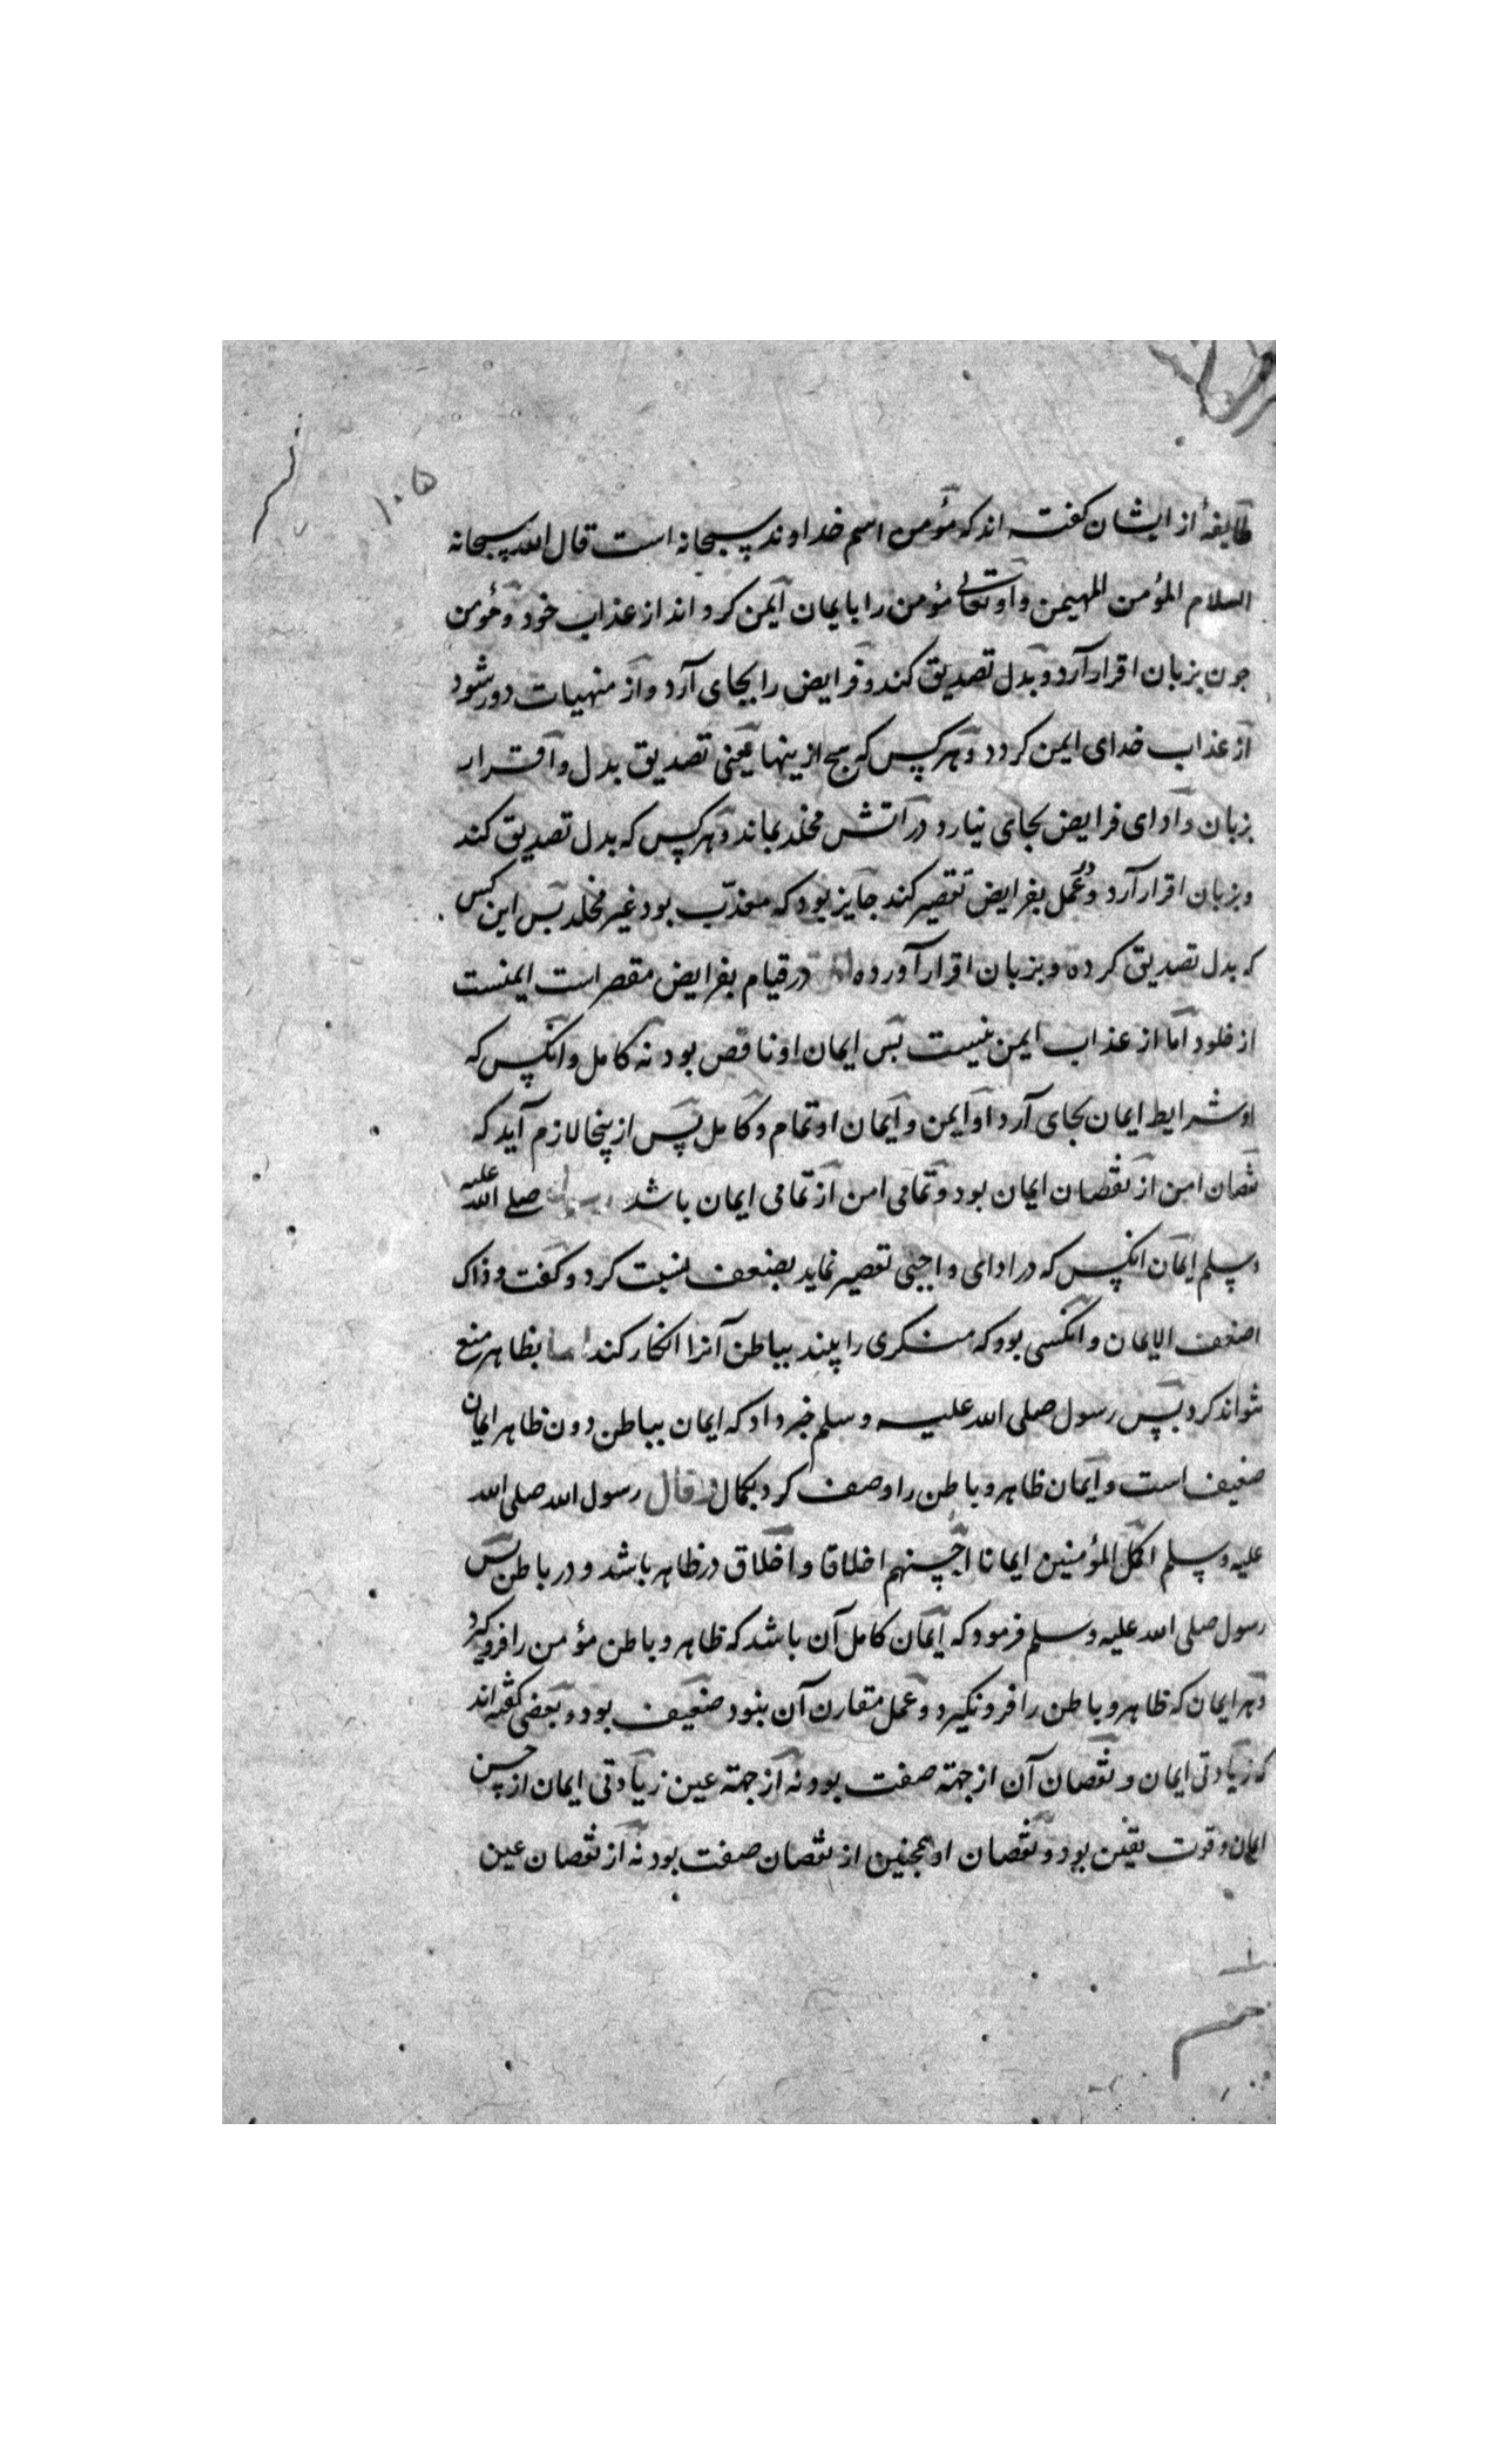 ۱۰۵
طایفهٔ از ایشان گفته اند که مؤمن اسم خداوند سبحانه است قال الله سبحانه
السلام المؤمن المهیمن و او تعالی مؤمن را بایمان ایمن کرد اند از عذاب خود و مؤمن
جون بزبان اقرار آرد و بدل تصدیق کند و فرایض را بجای آرد و از منهیات دور شود
از عذاب خدای ایمن کردد و هر کس که هیچ ازینها یعنی تصدیق بدل و اقرار
بزبان و ادای فرایض بجای نیارد در آتش مخلد بماند و هر کس که بدل تصدیق کند
و بزبان اقرار آرد و در عمل بفرایض تقصیر کند جایز بود که معذب بود غیر مخلد بس این کس
که بدل تصدیق کرده و بزبان اقرار آورده در قیام بفرایض مقصر است ایمنست
از خلود اما از عذاب ایمن نیست بس ایمان او ناقص بود نه کامل و انکس که
او شرایط ایمان بجای آرد او ایمن و ایمان او تمام و کامل بس ازینجا لازم آید که
نقصان امن از نقصان ایمان بود و تمامی امن از تمامی ایمان باشد صلی الله علیه
و سلم ایمان انکس که در ادای واجبی تقصیر نماید بضعف نسبت کرد و گفت و ذاک
اضعف الایمان و انکسی بود که منکری را بیند بباطن آنرا انکار کند بظاهر منع
نتواند کرد بس رسول صلی الله علیه و سلم خبر داد که ایمان بباطن دون ظاهر ایمان
ضعیف است و ایمان ظاهر و باطن را وصف کرد بکمال قال رسول الله صلی الله
علیه و سلم اکمل المؤمنین ایمانا احسنهم اخلاقا و اخلاق در ظاهر باشد و در باطن بس
رسول صلی الله علیه و سلم فرمود که ایمان کامل آن باشد که ظاهر و باطن مؤمن را فرو کیرد
و هر ایمان که ظاهر و باطن را فرو نکیرد و عمل مقارن آن نبود ضعیف بود و بعضی گفته اند
که زیادتی ایمان و نقصان آن از جهة صفت بود نه از جهة عین زیادتی ایمان از حسن
ایمان و قوت یقین بود و نقصان او همجنین از نقصان صفت بود نه از نقصان عین